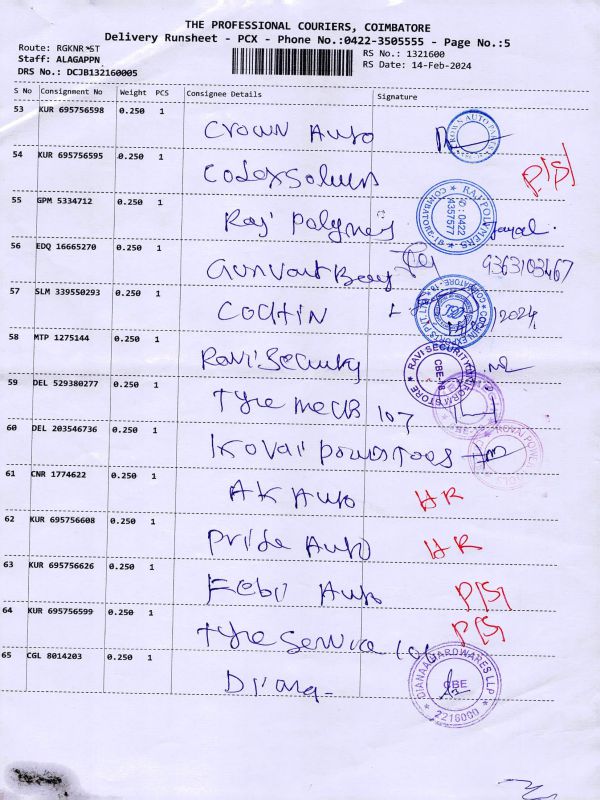 THE PROFESSIONAL COURIERS, COIMBATORE
Delivery Runsheet - PCX - Phone No.:0422-3505555 - Page No.:5
Route: RGKNR-ST
RS No.: 1321600
Staff: ALAGAPPN
RS Date: 14-Feb-2024
DRS No.: DCJB132160005
S No Consignment No Weight PCS Consignee Details Signature
53 KUR 695756598 0.250 1
Crown Auto
54 KUR 695756595 0.250 1
P/S/
55 GPM 5334712 0.250 1
Raj Polymers
RAJ POLYMERS
0422
4357577
56 EDQ 16665270 0.250 1
9363103467
57 SLM 339550293 0.250 1
COCHIN
/2024
58 MTP 1275144 0.250 1
Ravi Security
RAVI SECURITY UNIFORM STORE
CBE-18
59 DEL 529380277 0.250 1
Tyre mech 107
60 DEL 203546736 0.250 1
Kovai Powertools
61 CNR 1774622 0.250 1
AK Auto HR
62 KUR 695756608 0.250 1
Pride Auto HR
63 KUR 695756626 0.250 1
Febi Auto P/S/
64 KUR 695756599 0.250 1
Tyre Service P/S/
65 CGL 8014203 0.250 1
DIANAA HARDWARES LLP
CBE
2216000